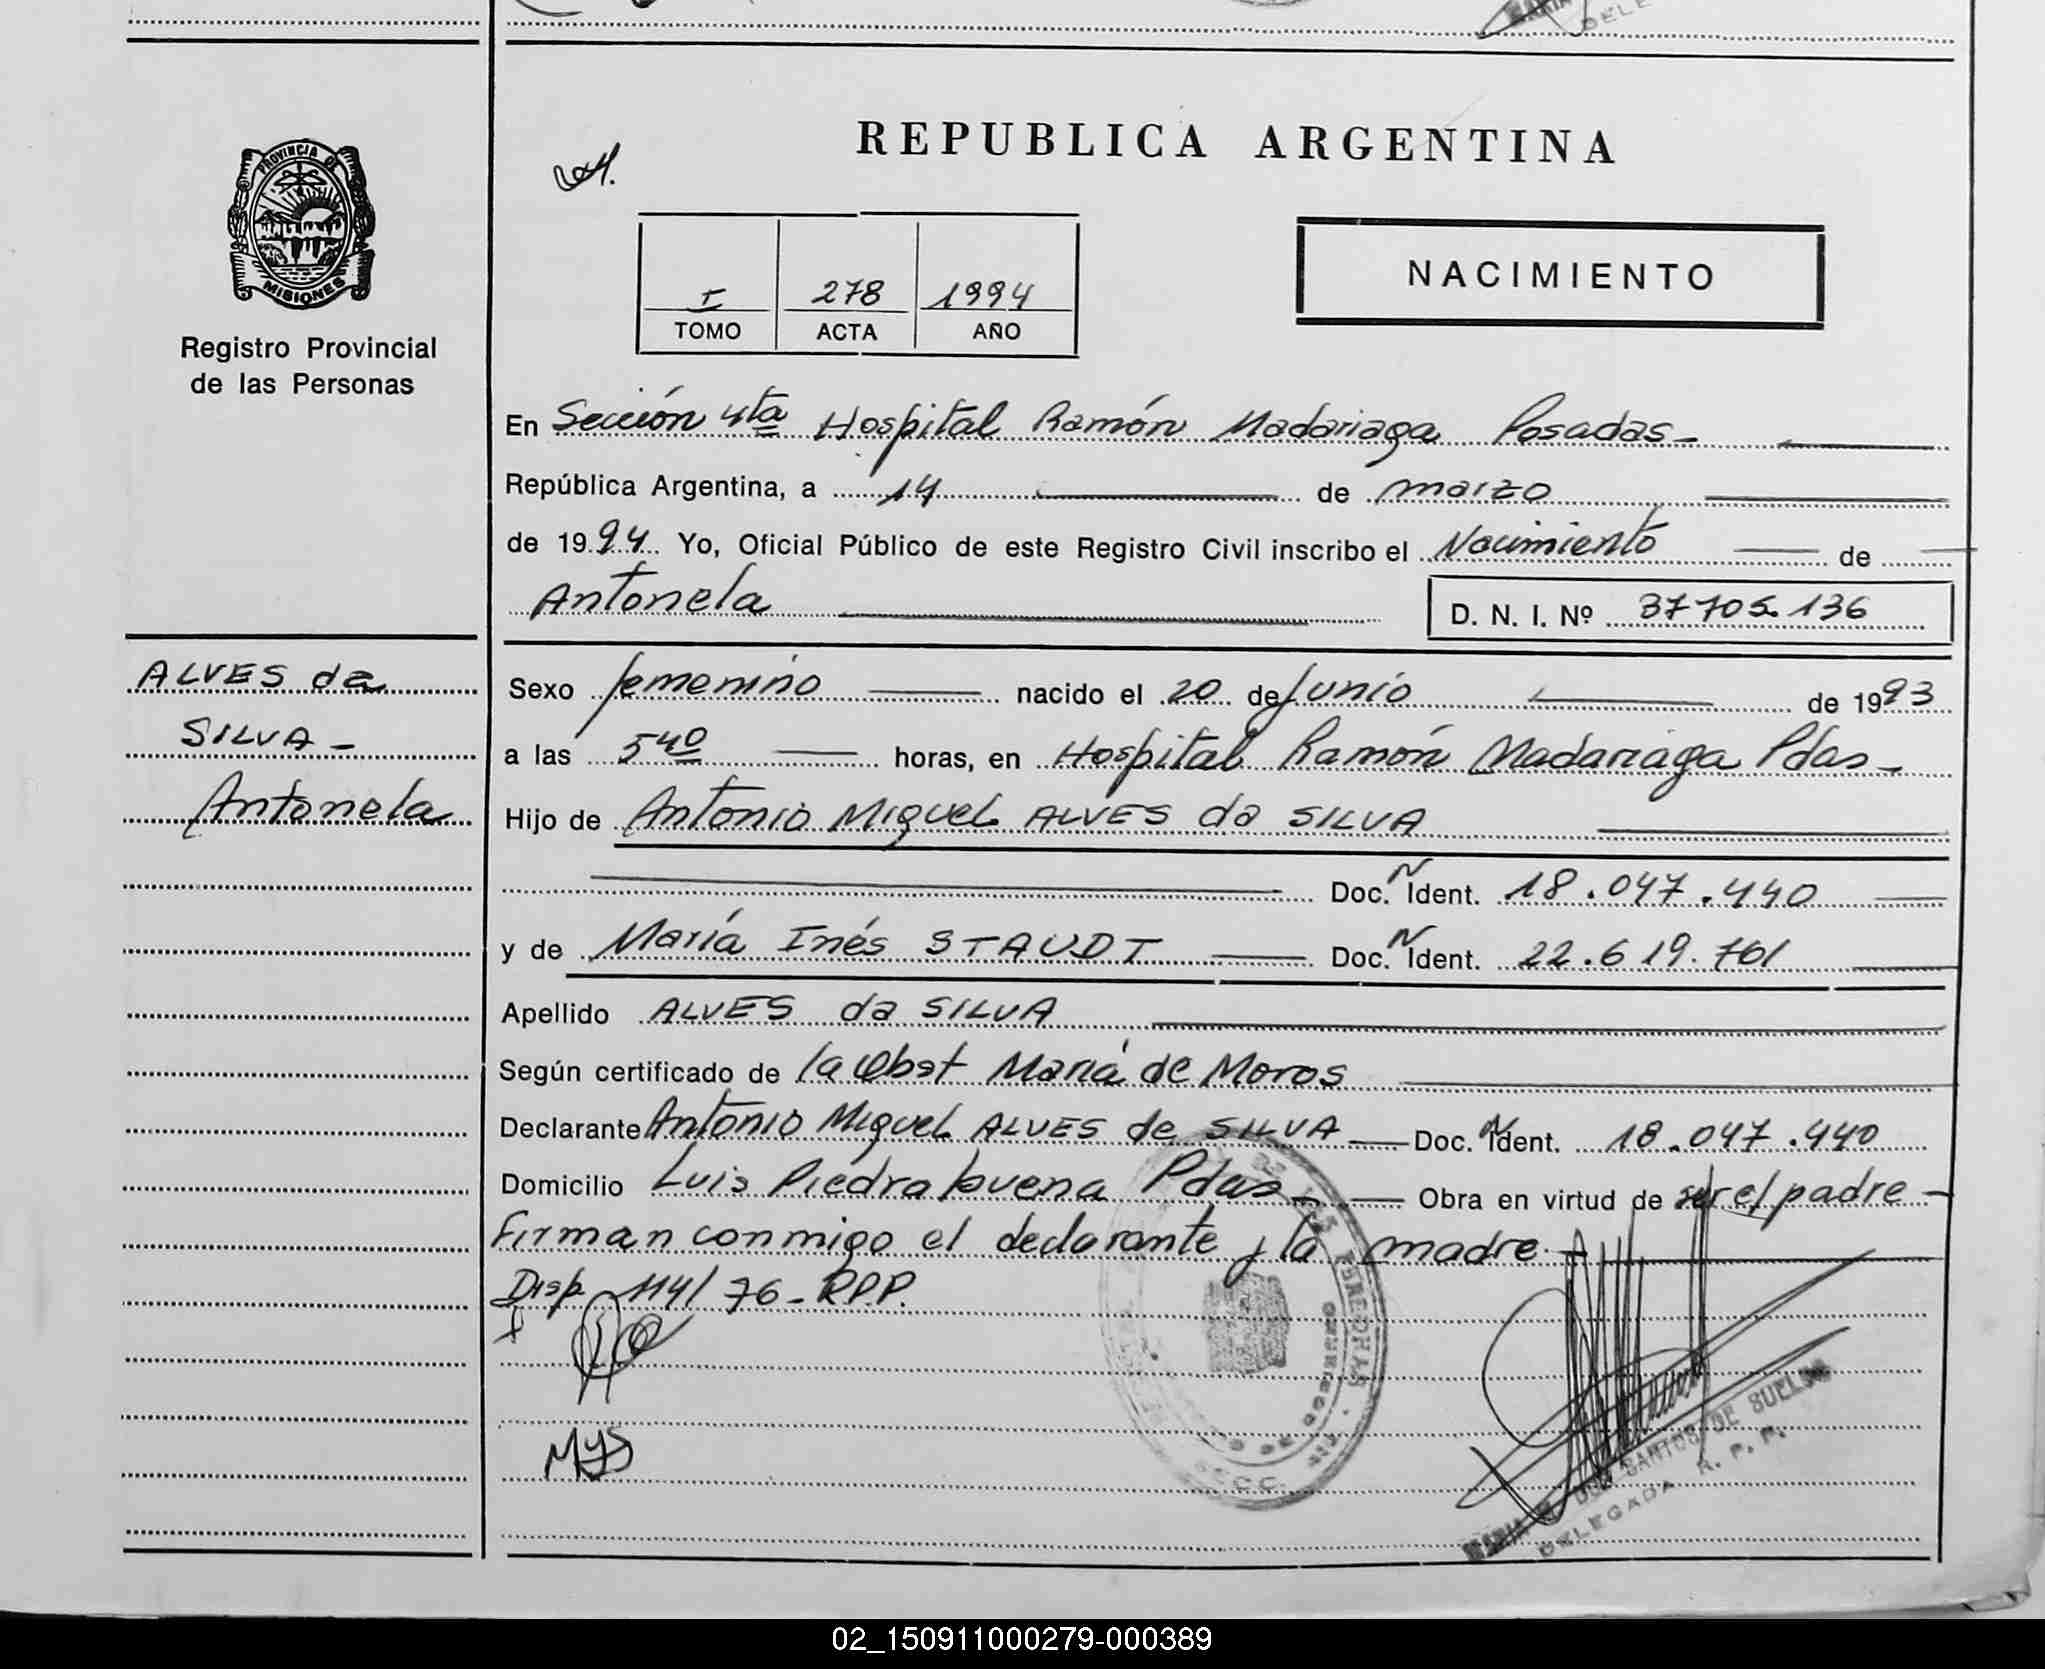 DELE
PROVINCIA DE
MISIONES
Registro Provincial
de las Personas
REPUBLICA ARGENTINA
I 278 1994
TOMO ACTA AÑO
NACIMIENTO
En Sección 4ta Hospital Ramón Madariaga Posadas-
República Argentina, a 14 de marzo
de 1994 Yo, Oficial Público de este Registro Civil inscribo el Nacimiento de
Antonela D. N. I. Nº 37705.136
ALVES da
SILVA -
Antonela
Sexo femenino nacido el 20 de Junio de 1993
a las 5 40 horas, en Hospital Ramón Madariaga Pdas-
Hijo de Antonio Miguel ALVES da SILVA
Doc. N Ident. 18.047.440
y de María Inés STAUDT Doc. N Ident. 22.619.761
Apellido ALVES da SILVA
Según certificado de la Obst María de Moros
Declarante Antonio Miguel ALVES de SILVA Doc. N Ident. 18.047.440
Domicilio Luis Piedra buena Pdas- Obra en virtud de ser el padre -
Firman conmigo el declarante y la madre.-
Disp. 114/76-R.P.P.
MYS
DOS SANTOS DE SUELOS
DELEGADA R. P. P.
02_150911000279-000389